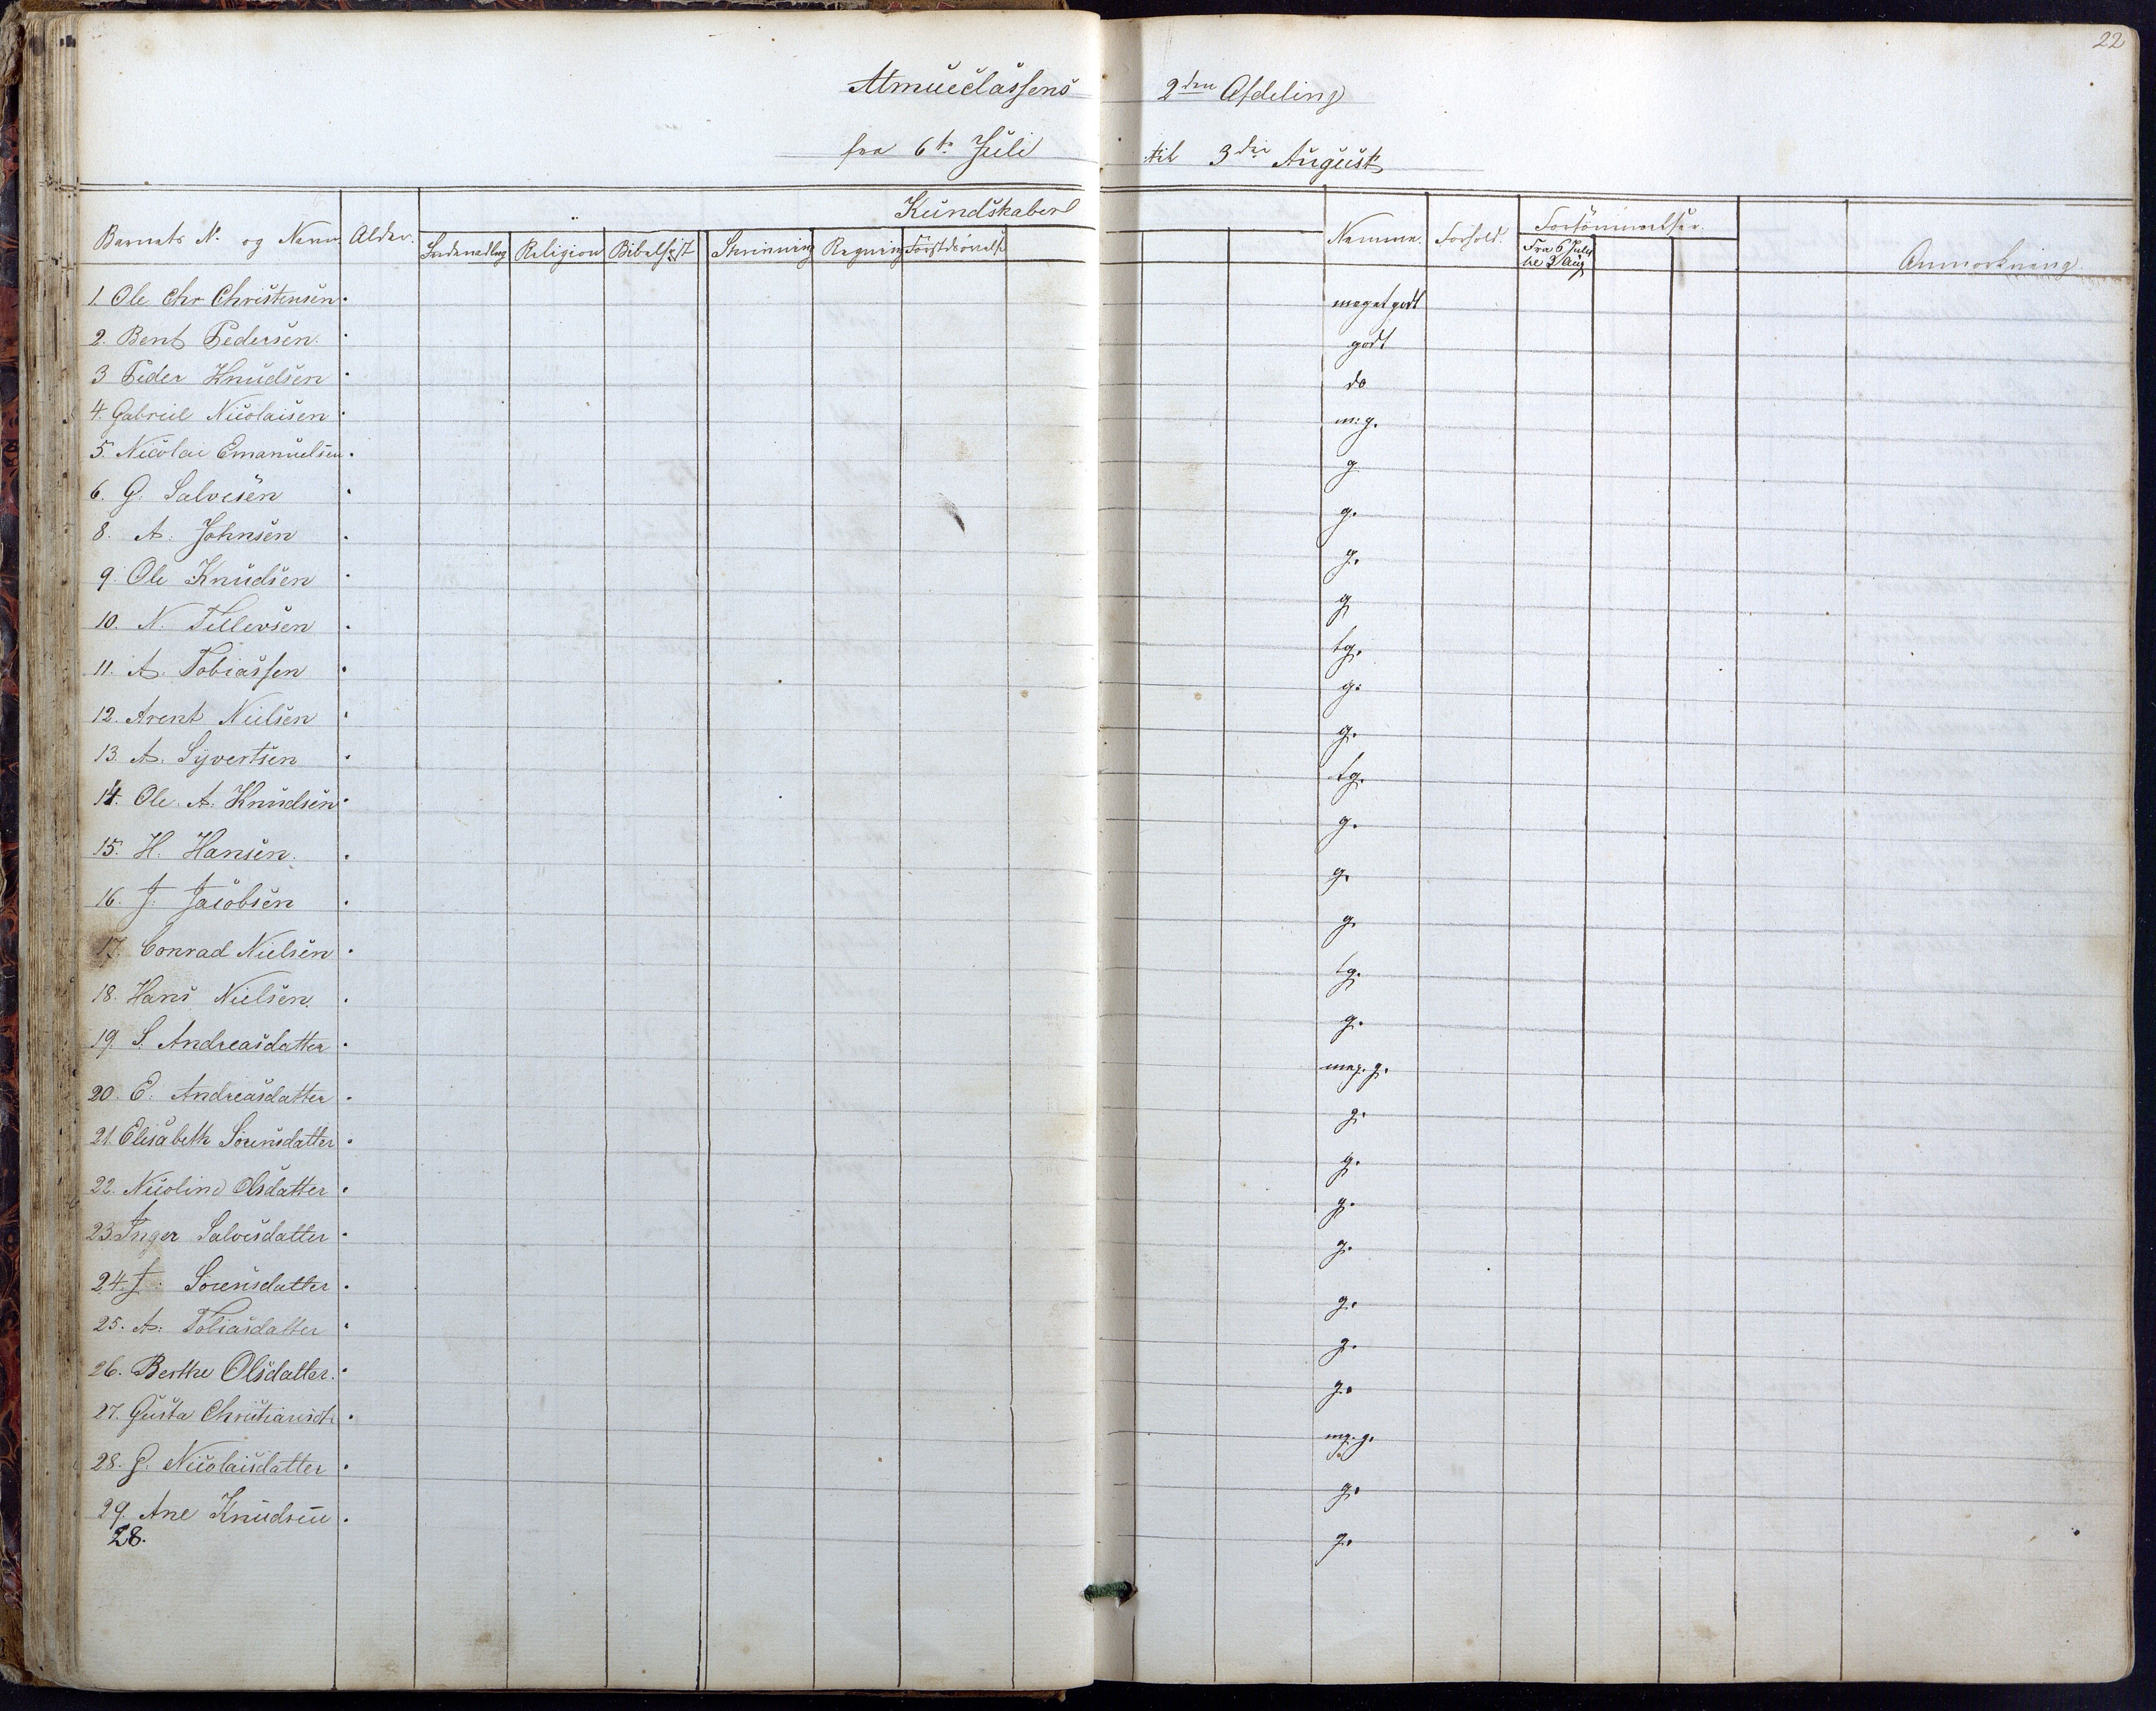 22
Almueclassens 2den Afdeling
fra 6te Juli til 3die August
Kundskaber
Barnets No og Navn Alder. Religion Skrivning Regning Nemme. Forhold. Forsömmelser. Anmærkning
Fra 6 Juli
til 3 Aug
1. Ole Chr Christensen. meget godt
2. Bent Pedersen. godt
3 Peder Knudsen do
4. Gabriel Nicolaisen m: g.
5. Nicolai Emanuelsen. g
6. G. Salvesen g.
8. A. Johnsen g.
9. Ole Knudsen g
10. N. Tellevsen tg.
11. A. Tobiassen g.
12. Arent Nielsen g.
13. A. Syvertsen tg.
14. Ole A. Knudsen g.
15. H. Hansen. g.
16. J. Jacobsen g.
17. Conrad Nielsen tg.
18. Hans Nielsen. g.
19. S. Andreasdatter meg. g.
20. E. Andreasdatter g.
21. Elisabeth Sörensdatter g.
22. Nicoline Olsdatter g.
23 Inger Salvesdatter g.
24. J. Sörensdatter g.
25. A. Tobiasdatter g.
26. Berthe Olsdatter. g.
27. Gusta Christiansdtr mg. g.
28. G. Nicolaisdatter g.
29. Ane Knudsen g.
28.